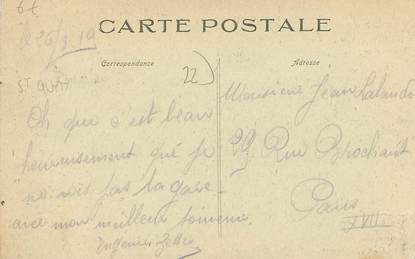 6€
le 26/3 19
CARTE POSTALE
Correspondance
Adresse
22
ST QUAY
Oh que c'est beau
heureusement que je
ne suis pas la gare
avec mon meilleur souvenir
Monsieur Jean Lalande
29 Rue Brochant
Paris
XVII